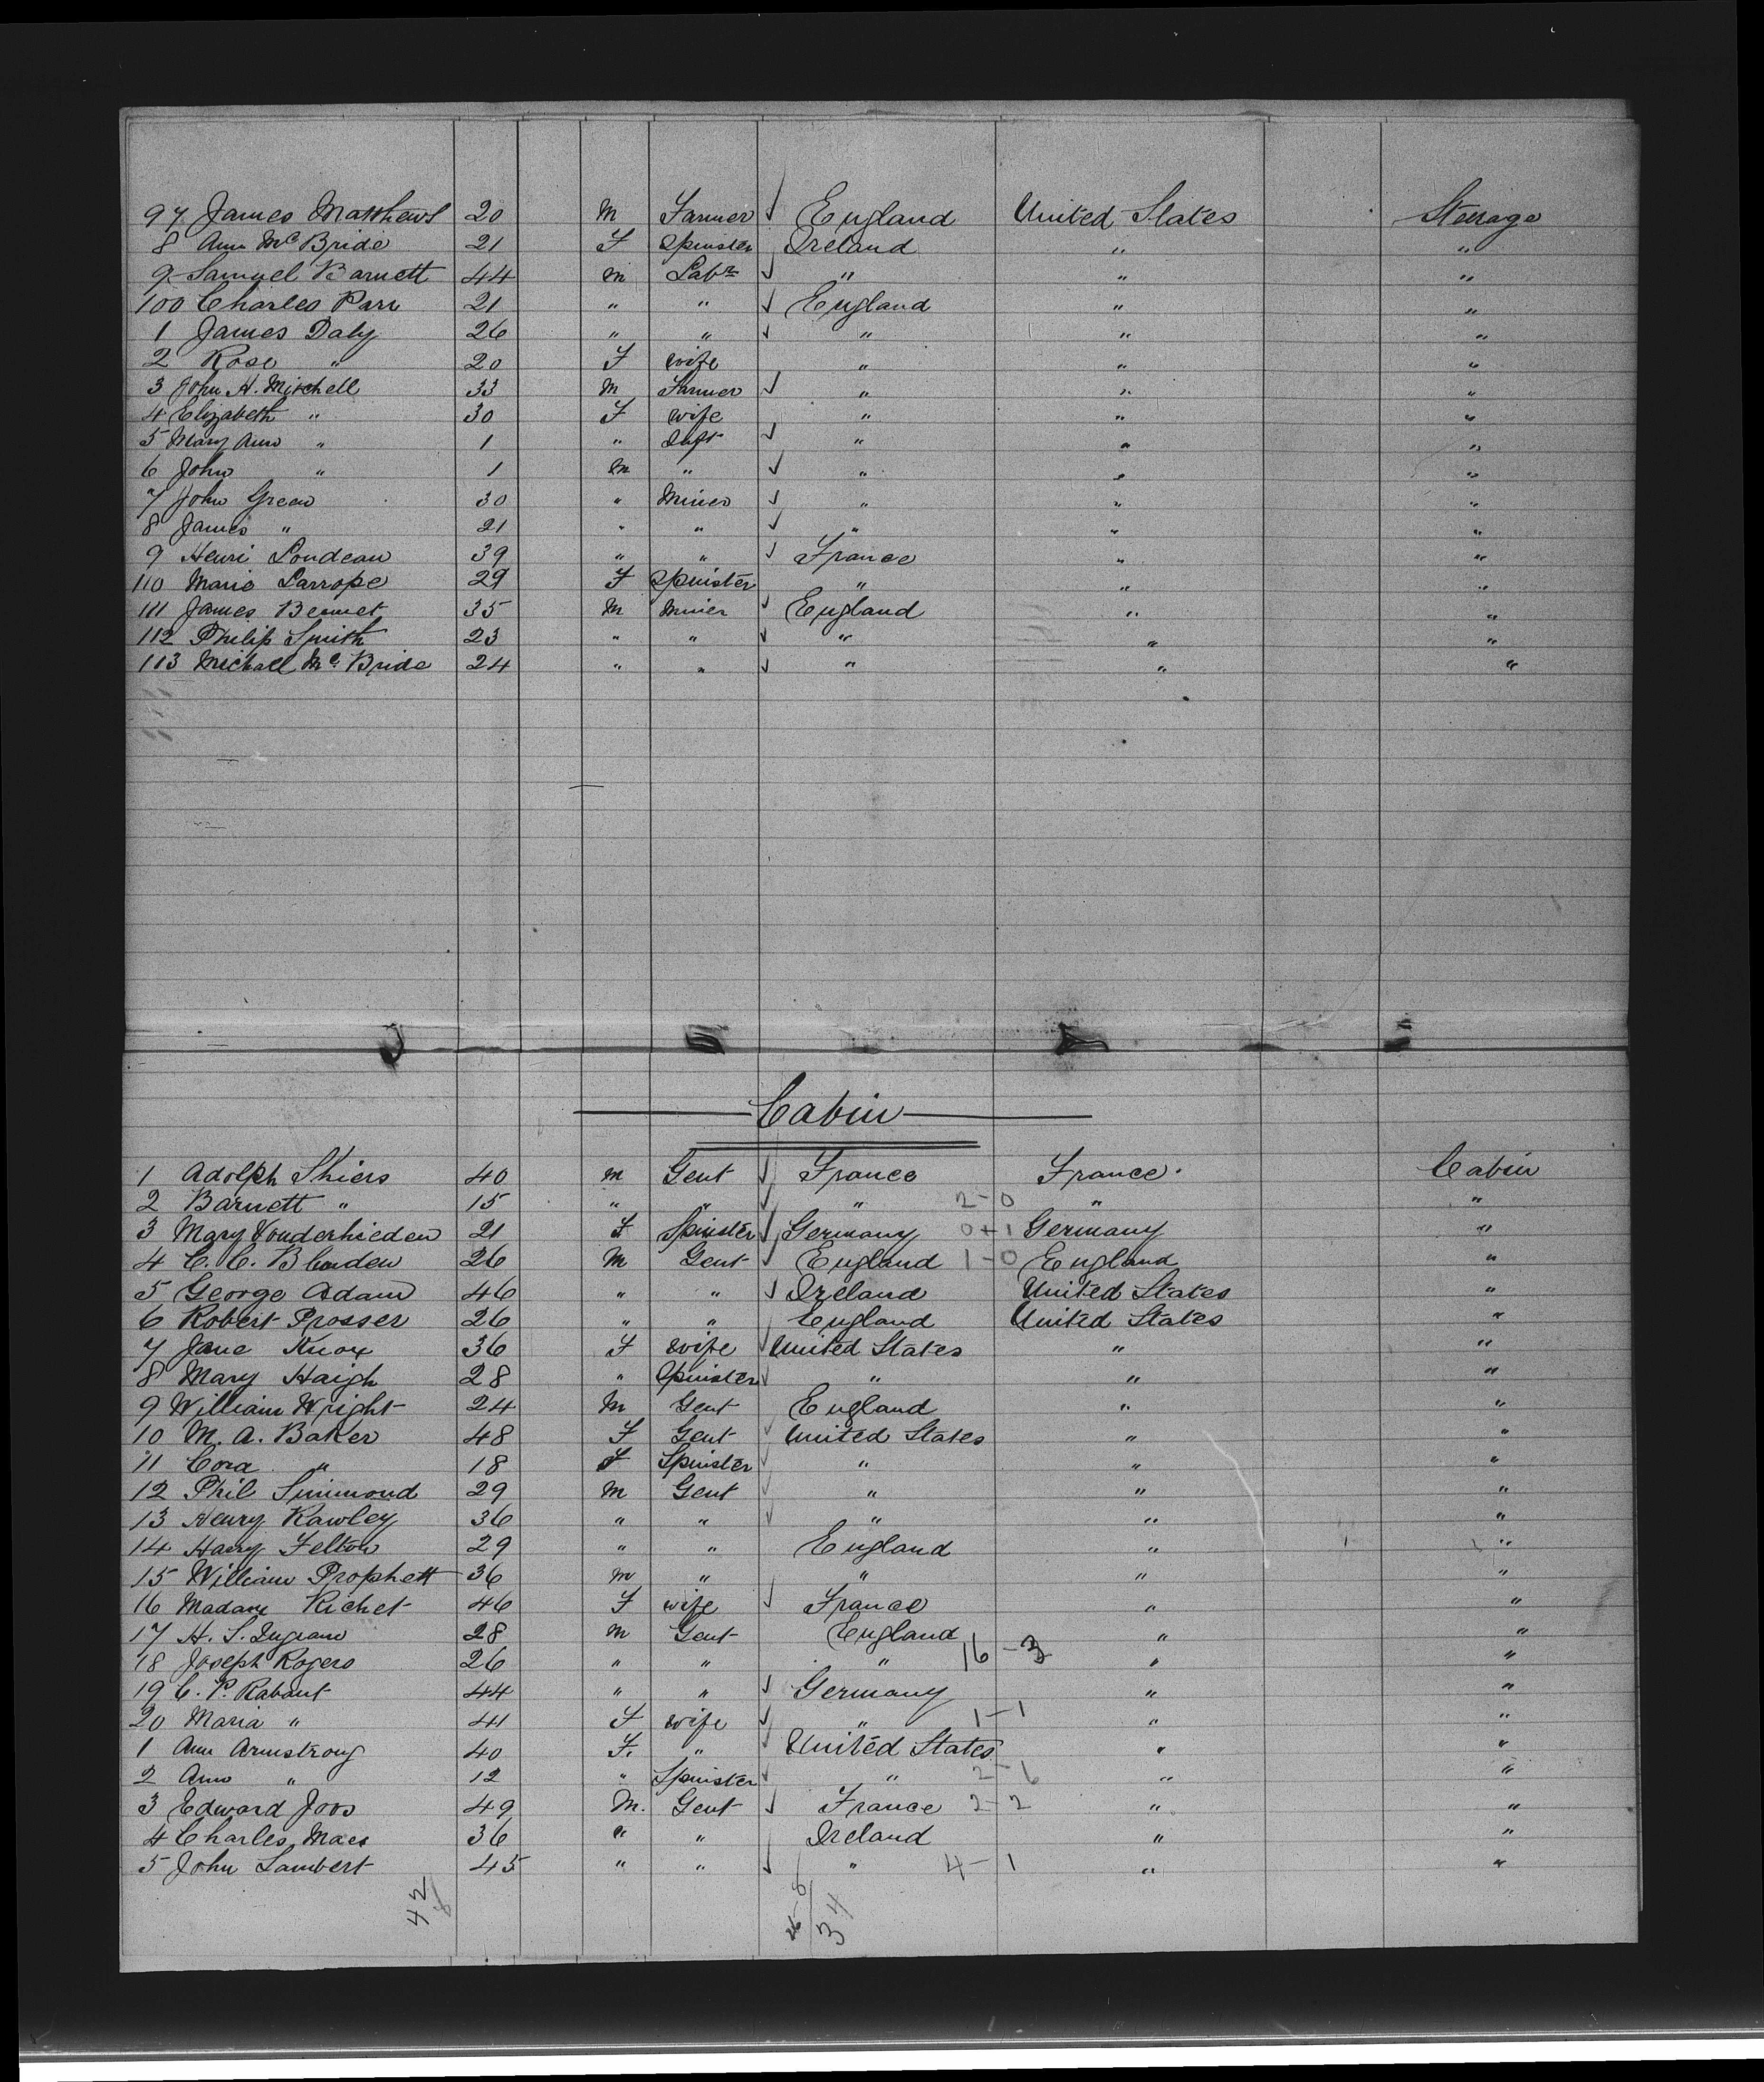 97 James Matthews 20 M Farmer England United States Steerage
8 Ann McBride 21 F Spinster Ireland " "
9 Samuel Barnett 44 m Labr " " "
100 Charles Parr 21 " " England " "
1 James Daly 26 " " " " "
2 Rose " 20 F wife " " "
3 John H. Mitchell 33 M Farmer " " "
4 Elizabeth " 30 F wife " " "
5 Mary Ann " 1 " Inft " " "
6 John " 1 m " " " "
7 John Green 30 " Miner " " "
8 James " 21 " " " " "
9 Henri Loudeau 39 " " France " "
110 Marie Larrope 29 F Spinster " " "
111 James Bennet 35 M Miner England " "
112 Philip Smith 23 " " " " "
113 Michall Mc Bride 24 " " " " "
Cabin
1 Adolph Thiers 40 m Gent France France. Cabin
2 Barnett " 15 " " " 2-0 " "
3 Mary Vonderhieden 21 F Spinster Germany 0+1 Germany "
4 C. C. 26 M Gent England 1-0 England "
5 George Adam 46 " " Ireland United States "
6 Robert Prosser 26 " " England United States "
7 Jane Knox 36 F wife United States " "
8 Mary Haigh 28 " Spinster " " "
9 William Wright 24 M Gent England " "
10 M. A. Baker 48 F Gent United States " "
11 Cora " 18 F Spinster " " "
12 Phil Simmond 29 M Gent " " "
13 Henry Rawley 36 " " " " "
14 Harry Felton 29 " " England " "
15 William Prophett 36 m " " " "
16 Madame Richet 46 F wife France " "
17 H. S. Ingram 28 m Gent England " "
18 Joseph Rogers 26 " " " 16-3 " "
19 C. P. Rabaut 44 " " Germany " "
20 Maria " 41 F wife " 1-1 " "
1 Ann Armstrong 40 F. " United States " "
2 Ann " 12 " Spinster " 2-6 " "
3 Edward Joos 49 M. Gent France 2-2 " "
4 Charles Maes 36 " " Ireland " "
5 John Lambert 45 " " " 4-1 " "
42
34